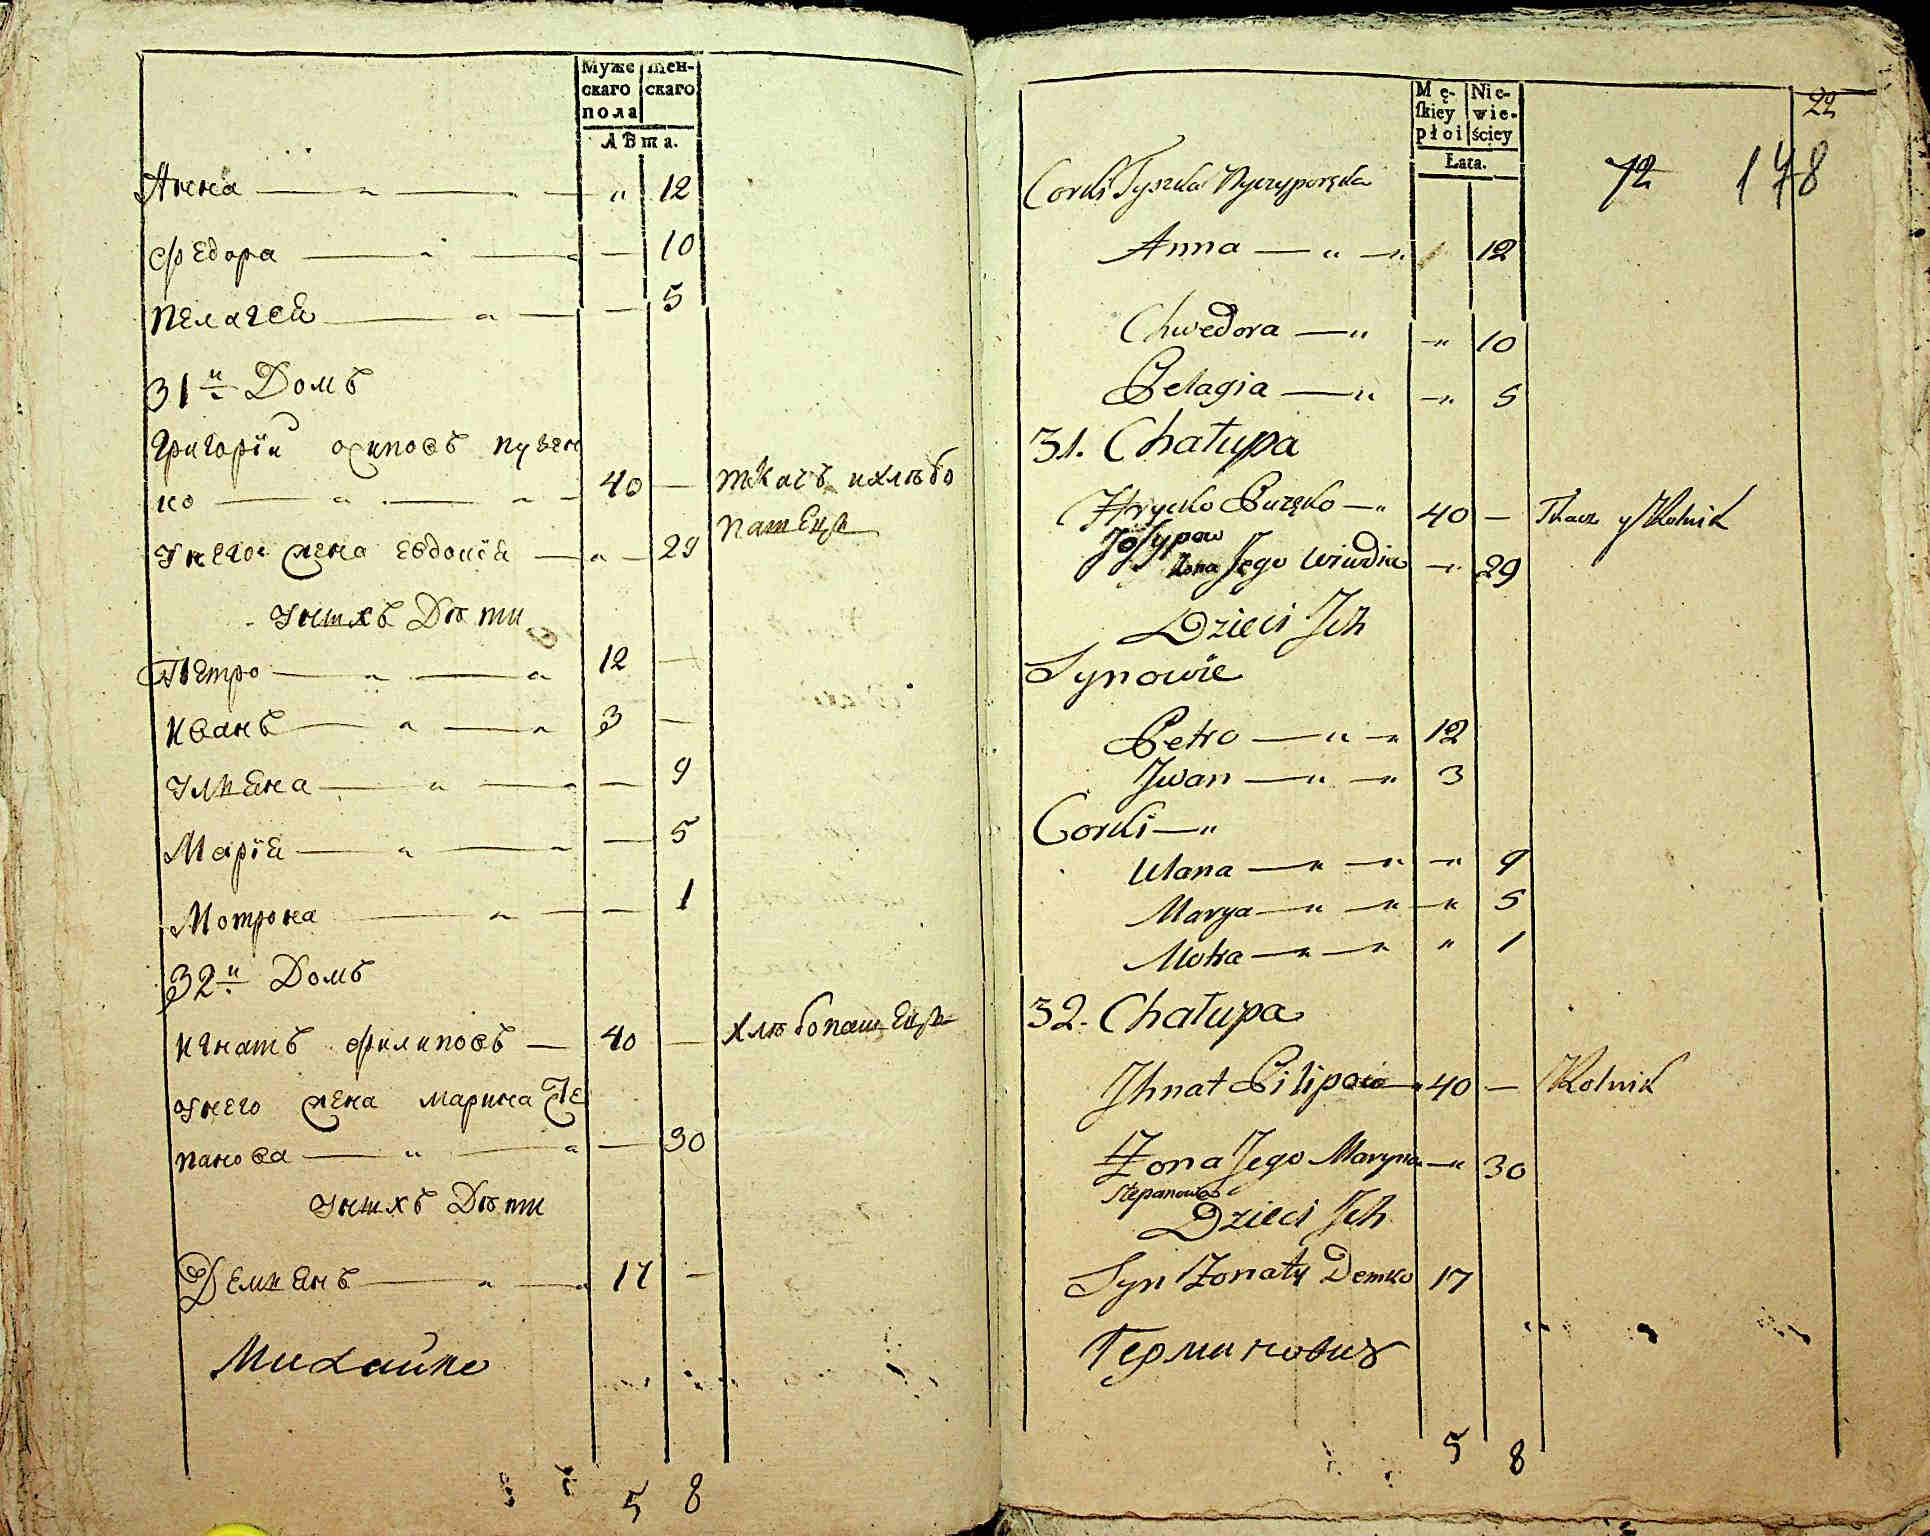 Муже скаго пола
женскаго
лѣта.
Анна — „ — „ 12
Федора — „ — — 10
Пелагей — „ — — 5
31й Домъ
Григорій Осиповъ Пузен
ко — „ — „ - 40 — ткачъ и хлѣбо
пашецъ
У него жена Евдокія — „ — 29
У нихъ Дѣти
Петро — „ — „ 12 —
Иванъ — „ — „ 3 —
Ульяна — „ — „ — 9
Марія — „ — „ — 5
Мотрона — „ — — 1
32й Домъ
Игнатъ Филиповъ — 40 — хлѣбопашецъ
У него жена Марина Сте
панова — „ — „ — 30
У нихъ Дѣти
Демьянъ — „ — „ 17 —
Михайло
5 8
Męskiey płoi
Niewieściey
Łata.
22
72 178
Corki Tyszka
Anna — „ — „ 12
Chwedora — „ — „ 10
Pelagia — „ — „ 5
31. Chałupa
Hrycko Puzęko — „ 40 — Tkacz y Rolnik
Josypow
Żona Jego Wiwdia — „ 29
Dzieci Jch
Synowie
Petro — „ — „ 12
Jwan — „ — „ 3
Corki — „
Ulana — „ — „ — „ 9
Marya — „ — „ — „ 5
Motra — „ — „ „ 1
32. Chałupa
Jhnat Pilipow 40 — Rolnik
Żona Jego Maryna — „ 30
Stepanowa
Dzieci Jch
Syn Żonaty Demko 17
Герминовичъ
5 8